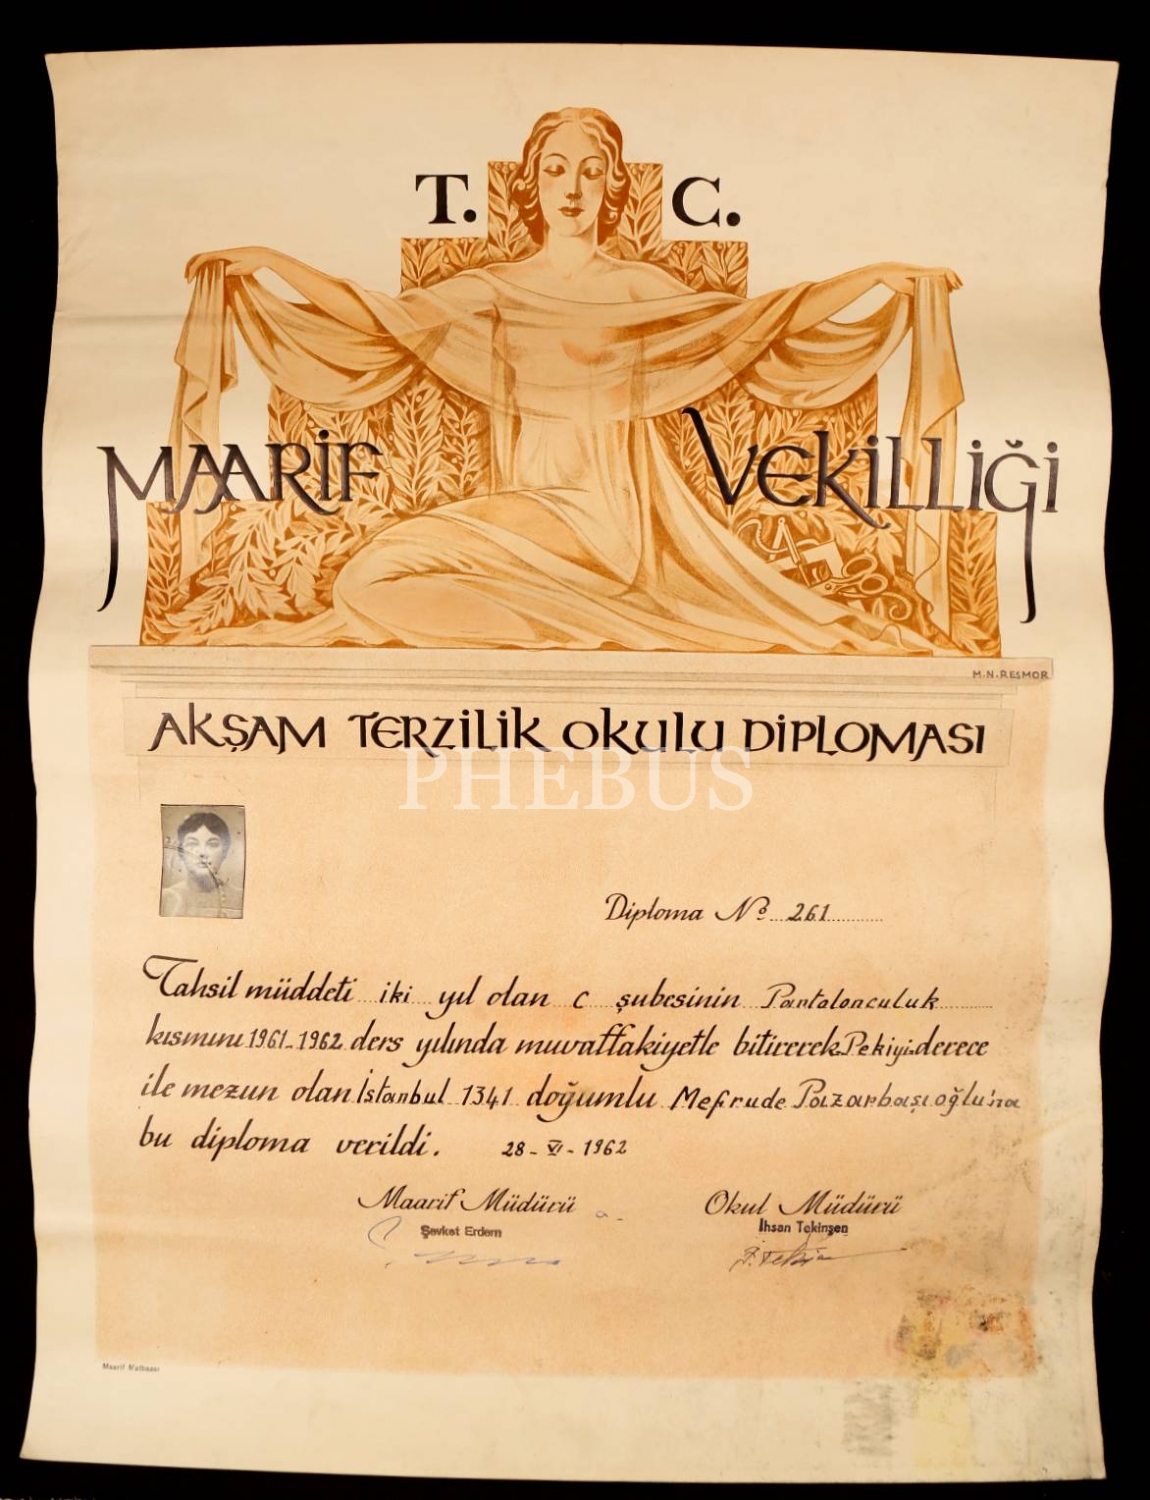 T. C.
MAARİF VEKİLLİĞİ
M.N.RESMOR
AKŞAM TERZİLİK OKULU DİPLOMASI
PHEBUS
Diploma No 261
Tahsil müddeti iki yıl olan C şubesinin Pantalonculuk
kısmını 1961-1962 ders yılında muvaffakiyetle bitirerek Pekiyi derece
ile mezun olan İstanbul 1341 doğumlu Mefrude Pazarbaşıoğlu'na
bu diploma verildi. 28-VI-1962
Maarif Müdürü Okul Müdürü
Şevket Erdem İhsan Tekinşen
Maarif Matbaası